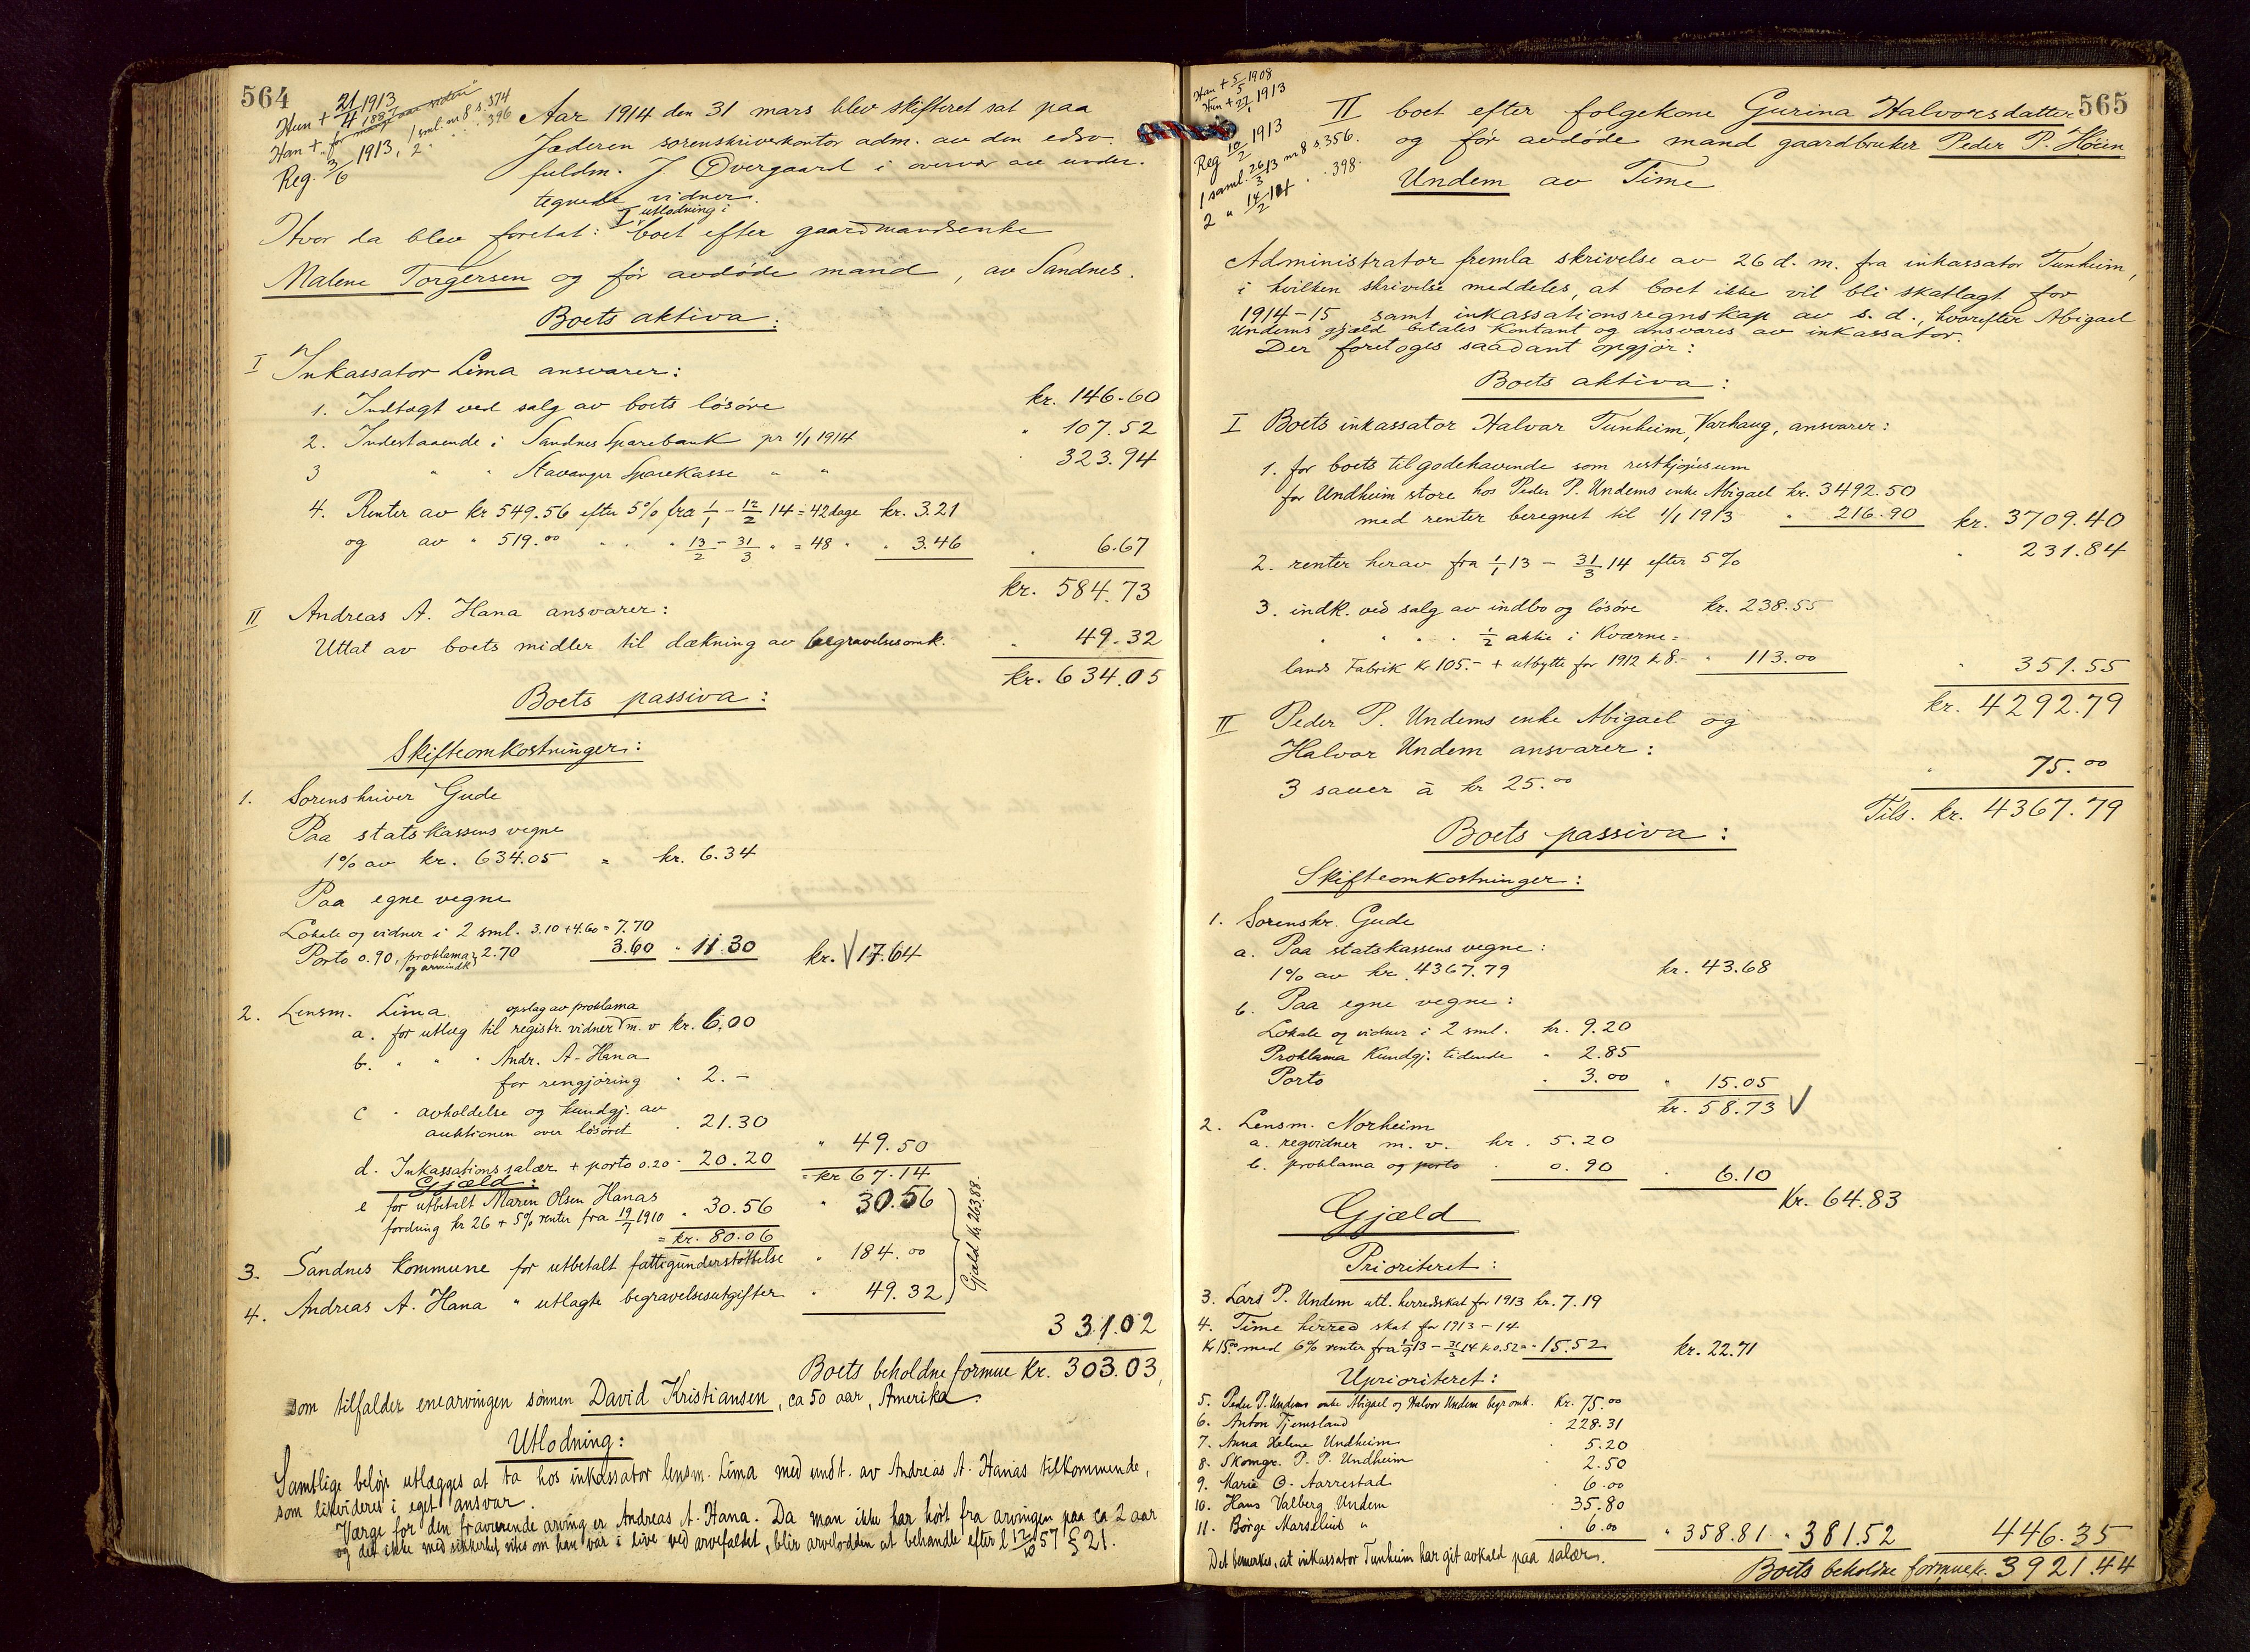 564
Hun + 21/4 1913
Han + for mange aar siden 1887
Reg. 3/6 1913, 1 saml. m 8 s. 374
2 " " . 396
Aar 1914 den 31 mars blev skifteret sat paa
Jæderen sorenskriverkontor adm. av den edsv.
fuldm. J. Övergaard i overvær av under-
tegnede vidner.
I utlodning i
Hvor da blev foretat: boet efter gaardmandsenke
Malene Torgersen og før avdöde mand, av Sandnes.
Boets aktiva:
I Inkassator Lima ansvarer:
1. Indtægt ved salg av boets lösöre kr. 146.60
2. Indestaaende i Sandnes Sparebank pr 1/1 1914 " 107.52
3 " " Stavanger Sparekasse " " " 323.94
4. Renter av kr 549.56 efter 5% fra 1/1 - 12/2 14 = 42 dage kr. 3.21
og av " 519.00 " " " 13/2 - 31/3 " = 48 " " 3.46 " 6.67
kr. 584.73
II Andreas A. Hana ansvarer:
Uttat av boets midler til dækning av begravelsesomk. " 49.32
kr. 634.05
Boets passiva:
Skifteomkostninger:
1. Sorenskriver Gude
Paa statskassens vegne
1% av kr. 634.05 = kr. 6.34
Paa egne vegne
Lokale og vidner i 2 sml. 3.10 + 4.60 = 7.70
Porto 0.90, proklama og arvindk. 2.70 3.60 " 11.30 kr. 17.64
2. Lensm. Lima opslag av proklama
a. for utlæg til registr. vidner m. v kr. 6.00
b. " " " Andr. A. Hana
for rengjöring " 2.-
c " avholdelse og kundgj. av
auktionen over lösöret " 21.30
d. Inkassationssalær + porto 0.20 " 20.20 " 49.50
= kr 67.14
Gjæld:
e for utbetalt Maren Olsen Hanas
fordring kr 26 + 5% renter fra 19/7 1910 " 30.56 " 30.56
= kr. 80.06
3. Sandnes Kommune for utbetalt fattigunderstöttelse " 184.00
4. Andreas A. Hana " utlagte begravelsesutgifter " 49.32
Gjæld kr 263.88
331.02
Boets beholdne formue kr. 303.03,
som tilfalder enearvingen sønnen David Kristiansen, ca 50 aar, Amerika.
Utlodning:
Samtlige beløp utlægges at ta hos inkassator lensm. Lima med undt. av Andreas A. Hanas tilkommende,
som likvideres i eget ansvar.
Værge for den fraværende arving er Andreas A. Hana. Da man ikke har hört fra arvingen paa ca 2 aar
og det ikke med sikkerhet vites om han var i live ved arvefaldet, blir arvelodden at behandle efter l 12/10 57 § 21.
565
Han + 5/5 1908
Hun + 27/1 1913
Reg 10/2 1913
1 saml. 26/3 13 m 8 s. 356.
2 " 14/2 14 " . 398.
II boet efter folgekone Gurina Halvorsdatter
og før avdöde mand gaardbruker Peder P. Høien
Undem av Time
Administrator fremla skrivelse av 26 d. m. fra inkassator Tunheim,
i hvilken skrivelse meddeles, at boet ikke vil bli skatlagt for
1914-15 samt inkassationsregnskap av s. d., hvorefter Abigael
Undems gjæld betales kontant og ansvares av inkassator.
Der foretoges saadant opgjør:
Boets aktiva:
I Boets inkassator Halvar Tunheim, Varhaug, ansvarer:
1. for boets tilgodehavende som restkjöpesum
for Undheim store hos Peder P. Undems enke Abigael kr. 3492.50
med renter beregnet til 1/1 1913 " 216.90 kr. 3709.40
2. renter herav fra 1/1 13 - 31/3 14 efter 5% " 231.84
3. indk. ved salg av indbo og lösöre kr. 238.55
" " " " 1/2 aktie i Kværne-
lands Fabrik kr 105.- + utbytte for 1912 kr 8.- " 113.00 " 351.55
kr. 4292.79
II Peder P. Undems enke Abigael og
Halvor Undem ansvarer:
3 sauer à kr 25.00 " 75.00
Tils. kr. 4367.79
Boets passiva:
Skifteomkostninger:
1. Sorenskr. Gude
a. Paa statskassens vegne:
1% av kr. 4367.79 kr. 43.68
b. Paa egne vegne:
Lokale og vidner i 2 sml. kr. 9.20
Proklama Kundgj. tidende " 2.85
Porto " 3.00 " 15.05
kr. 58.73
2. Lensm. Norheim
a. regvidner m. v. kr. 5.20
b. proklama og porto " 0.90 " 6.10
Kr. 64.83
Gjæld
Prioriteret:
3. Lars P. Undem utl. herredsskat for 1913 kr. 7.19
4. Time herred skat for 1913-14
Kr 15.00 med 6% renter fra 1/9 13 - 31/3 14 kr 0.52 = " 15.52 kr. 22.71
Uprioriteret:
5. Peder P. Undems enke Abigael og Halvor Undem begr. omk. Kr. 75.00
6. Anton Tjemsland " 228.31
7. Anna Helene Undheim " 5.20
8. Skomgr. P. P. Undheim " 2.50
9. Marie O. Aarrestad " 6.00
10. Hans Valberg Undem " 35.80
11. Börge Marselius " " 6.00 " 358.81 " 381.52 446.35
Det bemerkes, at inkassator Tunheim har git avkald paa salær.
Boets beholdne formue kr. 3921.44